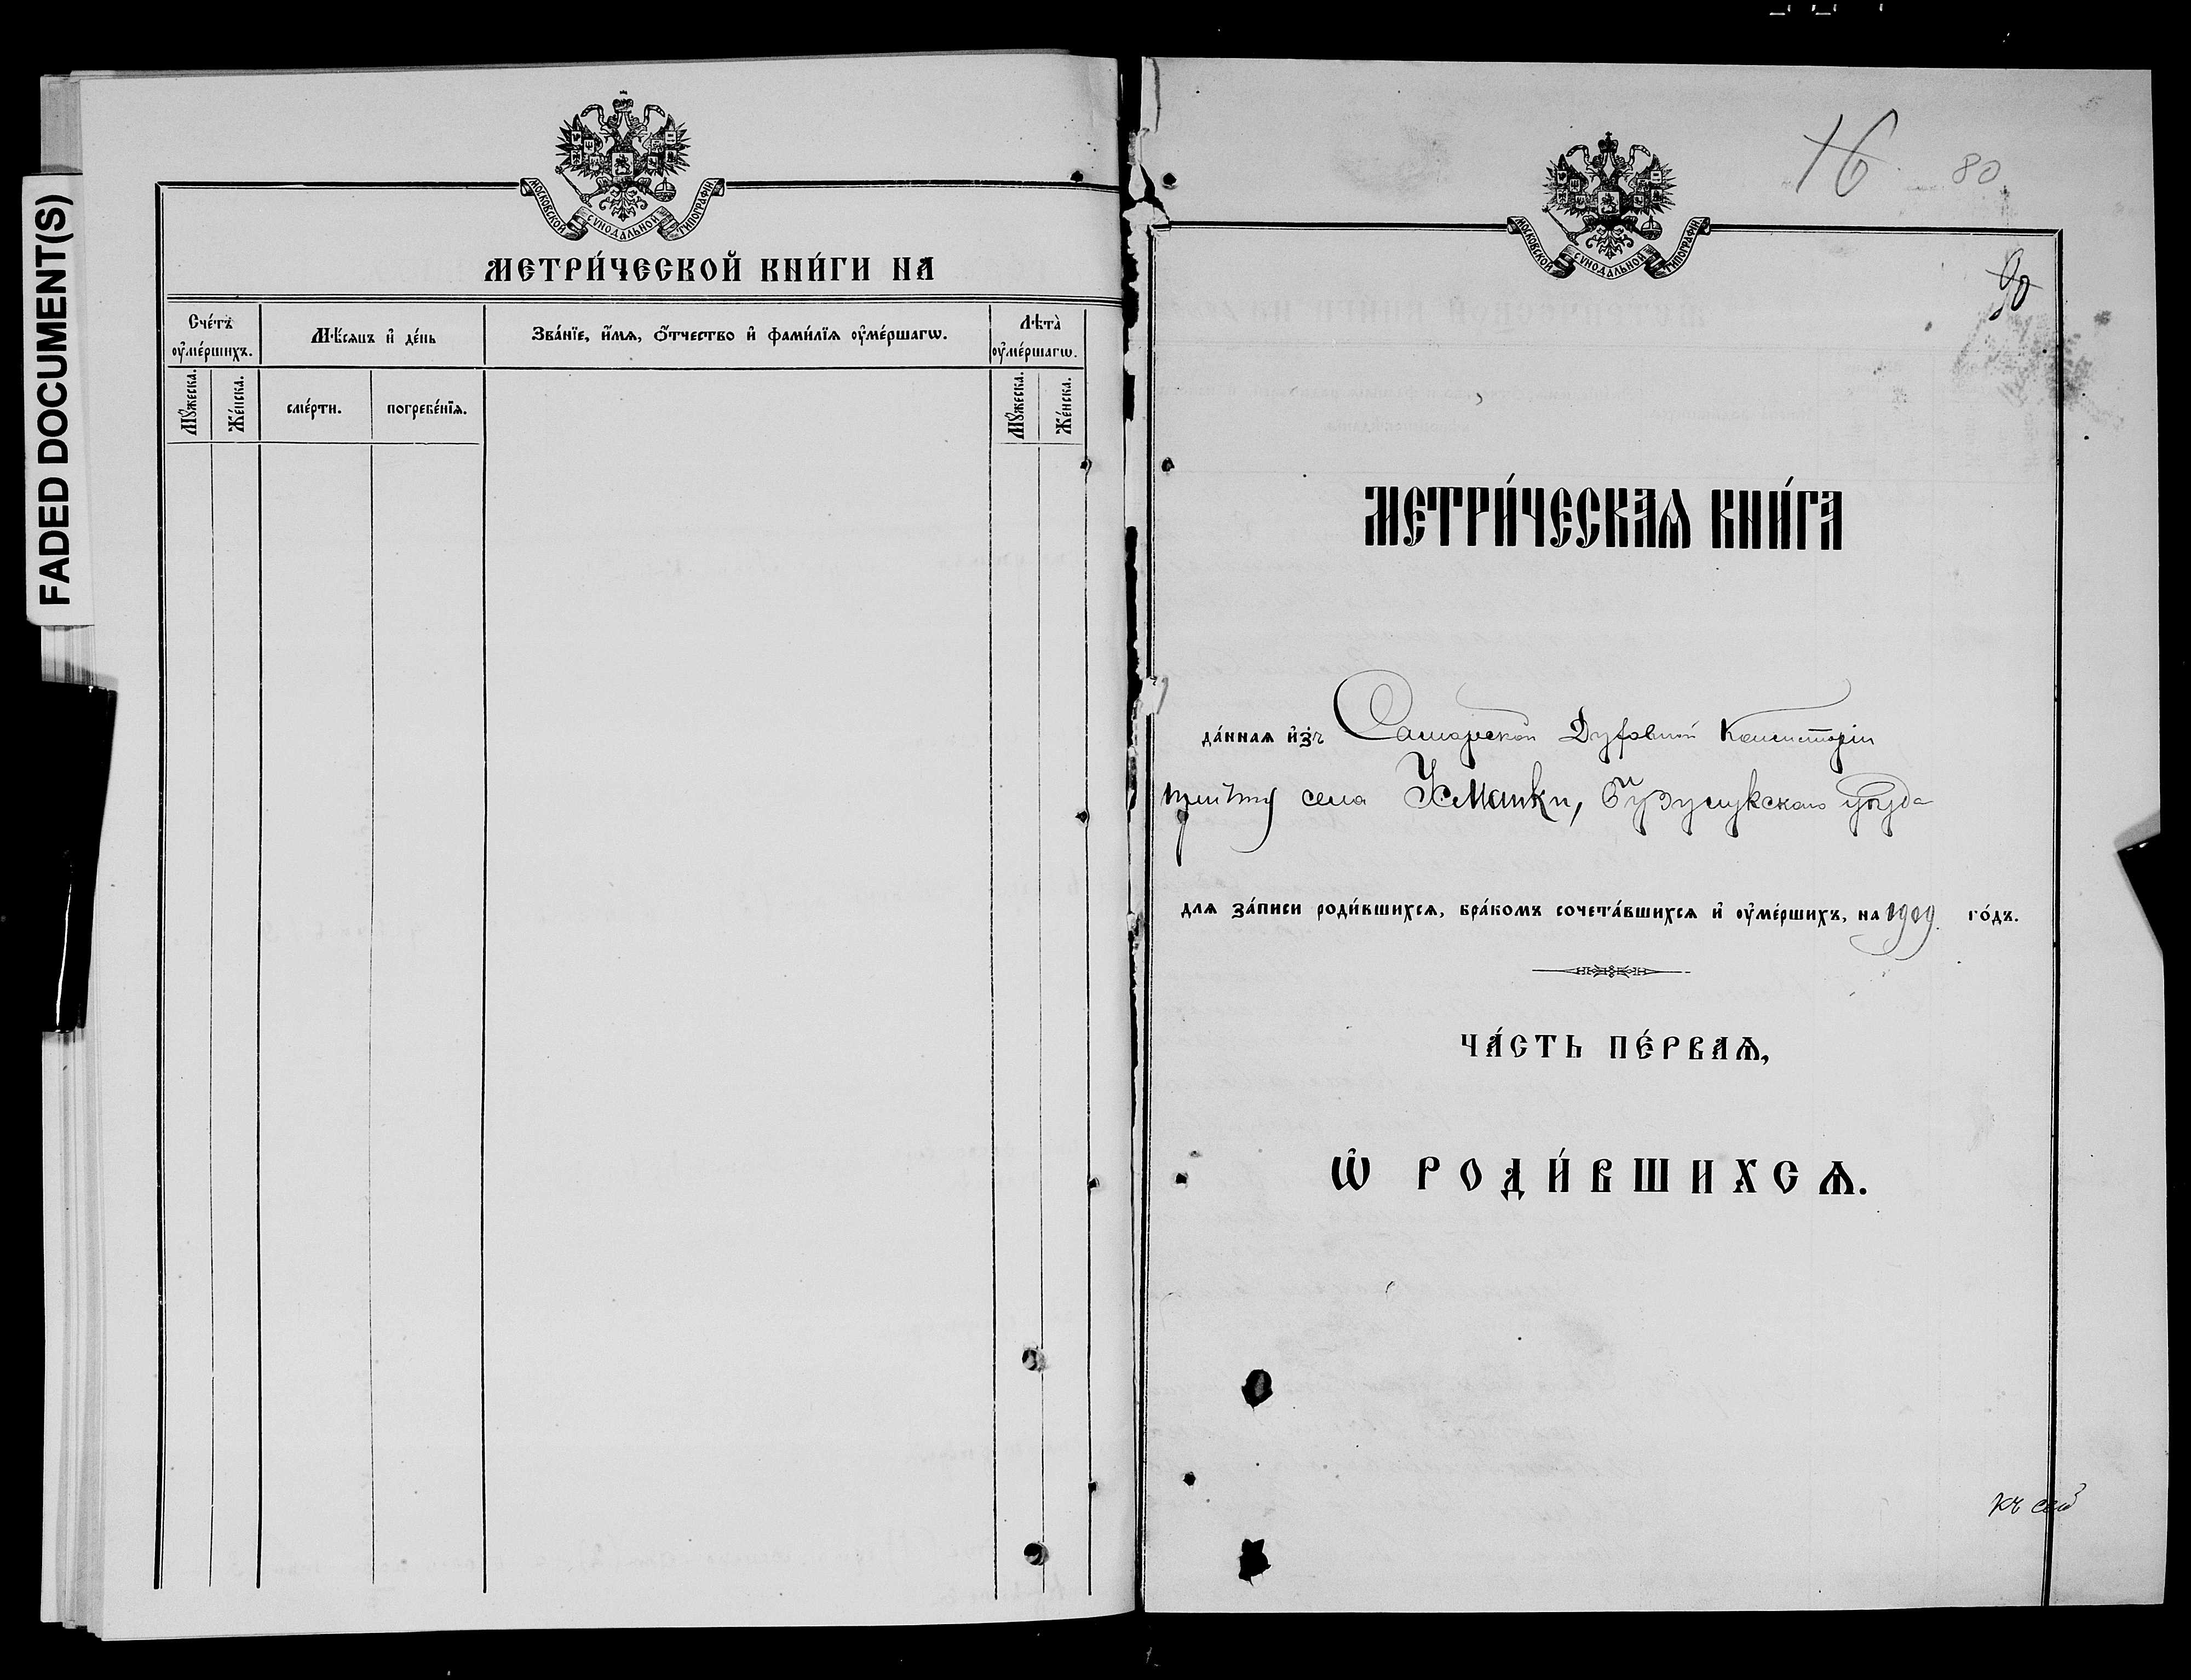 FADED DOCUMENT(S)
МОСКОВСКОЙ СѴНОДАЛЬНОЙ ТИПОГРАФІИ
МЕТРИ́ЧЕСКОЙ КНИ́ГИ НА
Сче́тъ ᲂу҆ме́ршихъ.
Мѣ́сѧцъ и҆ де́нь
Зва́нїе, и҆́мѧ, ѻ҆́тчество и҆ фами́лїѧ ᲂу҆ме́ршагѡ.
Лѣта̀ ᲂу҆ме́ршагѡ.
Мꙋ́жеска.
Же́нска.
сме́рти.
погребе́нїѧ.
Мꙋ́жеска.
Же́нска.
16
80
90
МОСКОВСКОЙ СѴНОДАЛЬНОЙ ТИПОГРАФІИ
МЕТРИ́ЧЕСКАѦ КНИ́ГА
да́ннаѧ и҆зъ Самарской Духовной Консисторіи
причту села Усманки, Бузулукскаго уѣзда
длѧ за́писи роди́вшихсѧ, бра́комъ сочета́вшихсѧ и҆ ᲂу҆ме́ршихъ, на 1909. го́дъ.
ЧА́СТЬ ПЕ́РВАѦ,
Ѡ҆ РОДИ́ВШИХСѦ.
къ сей